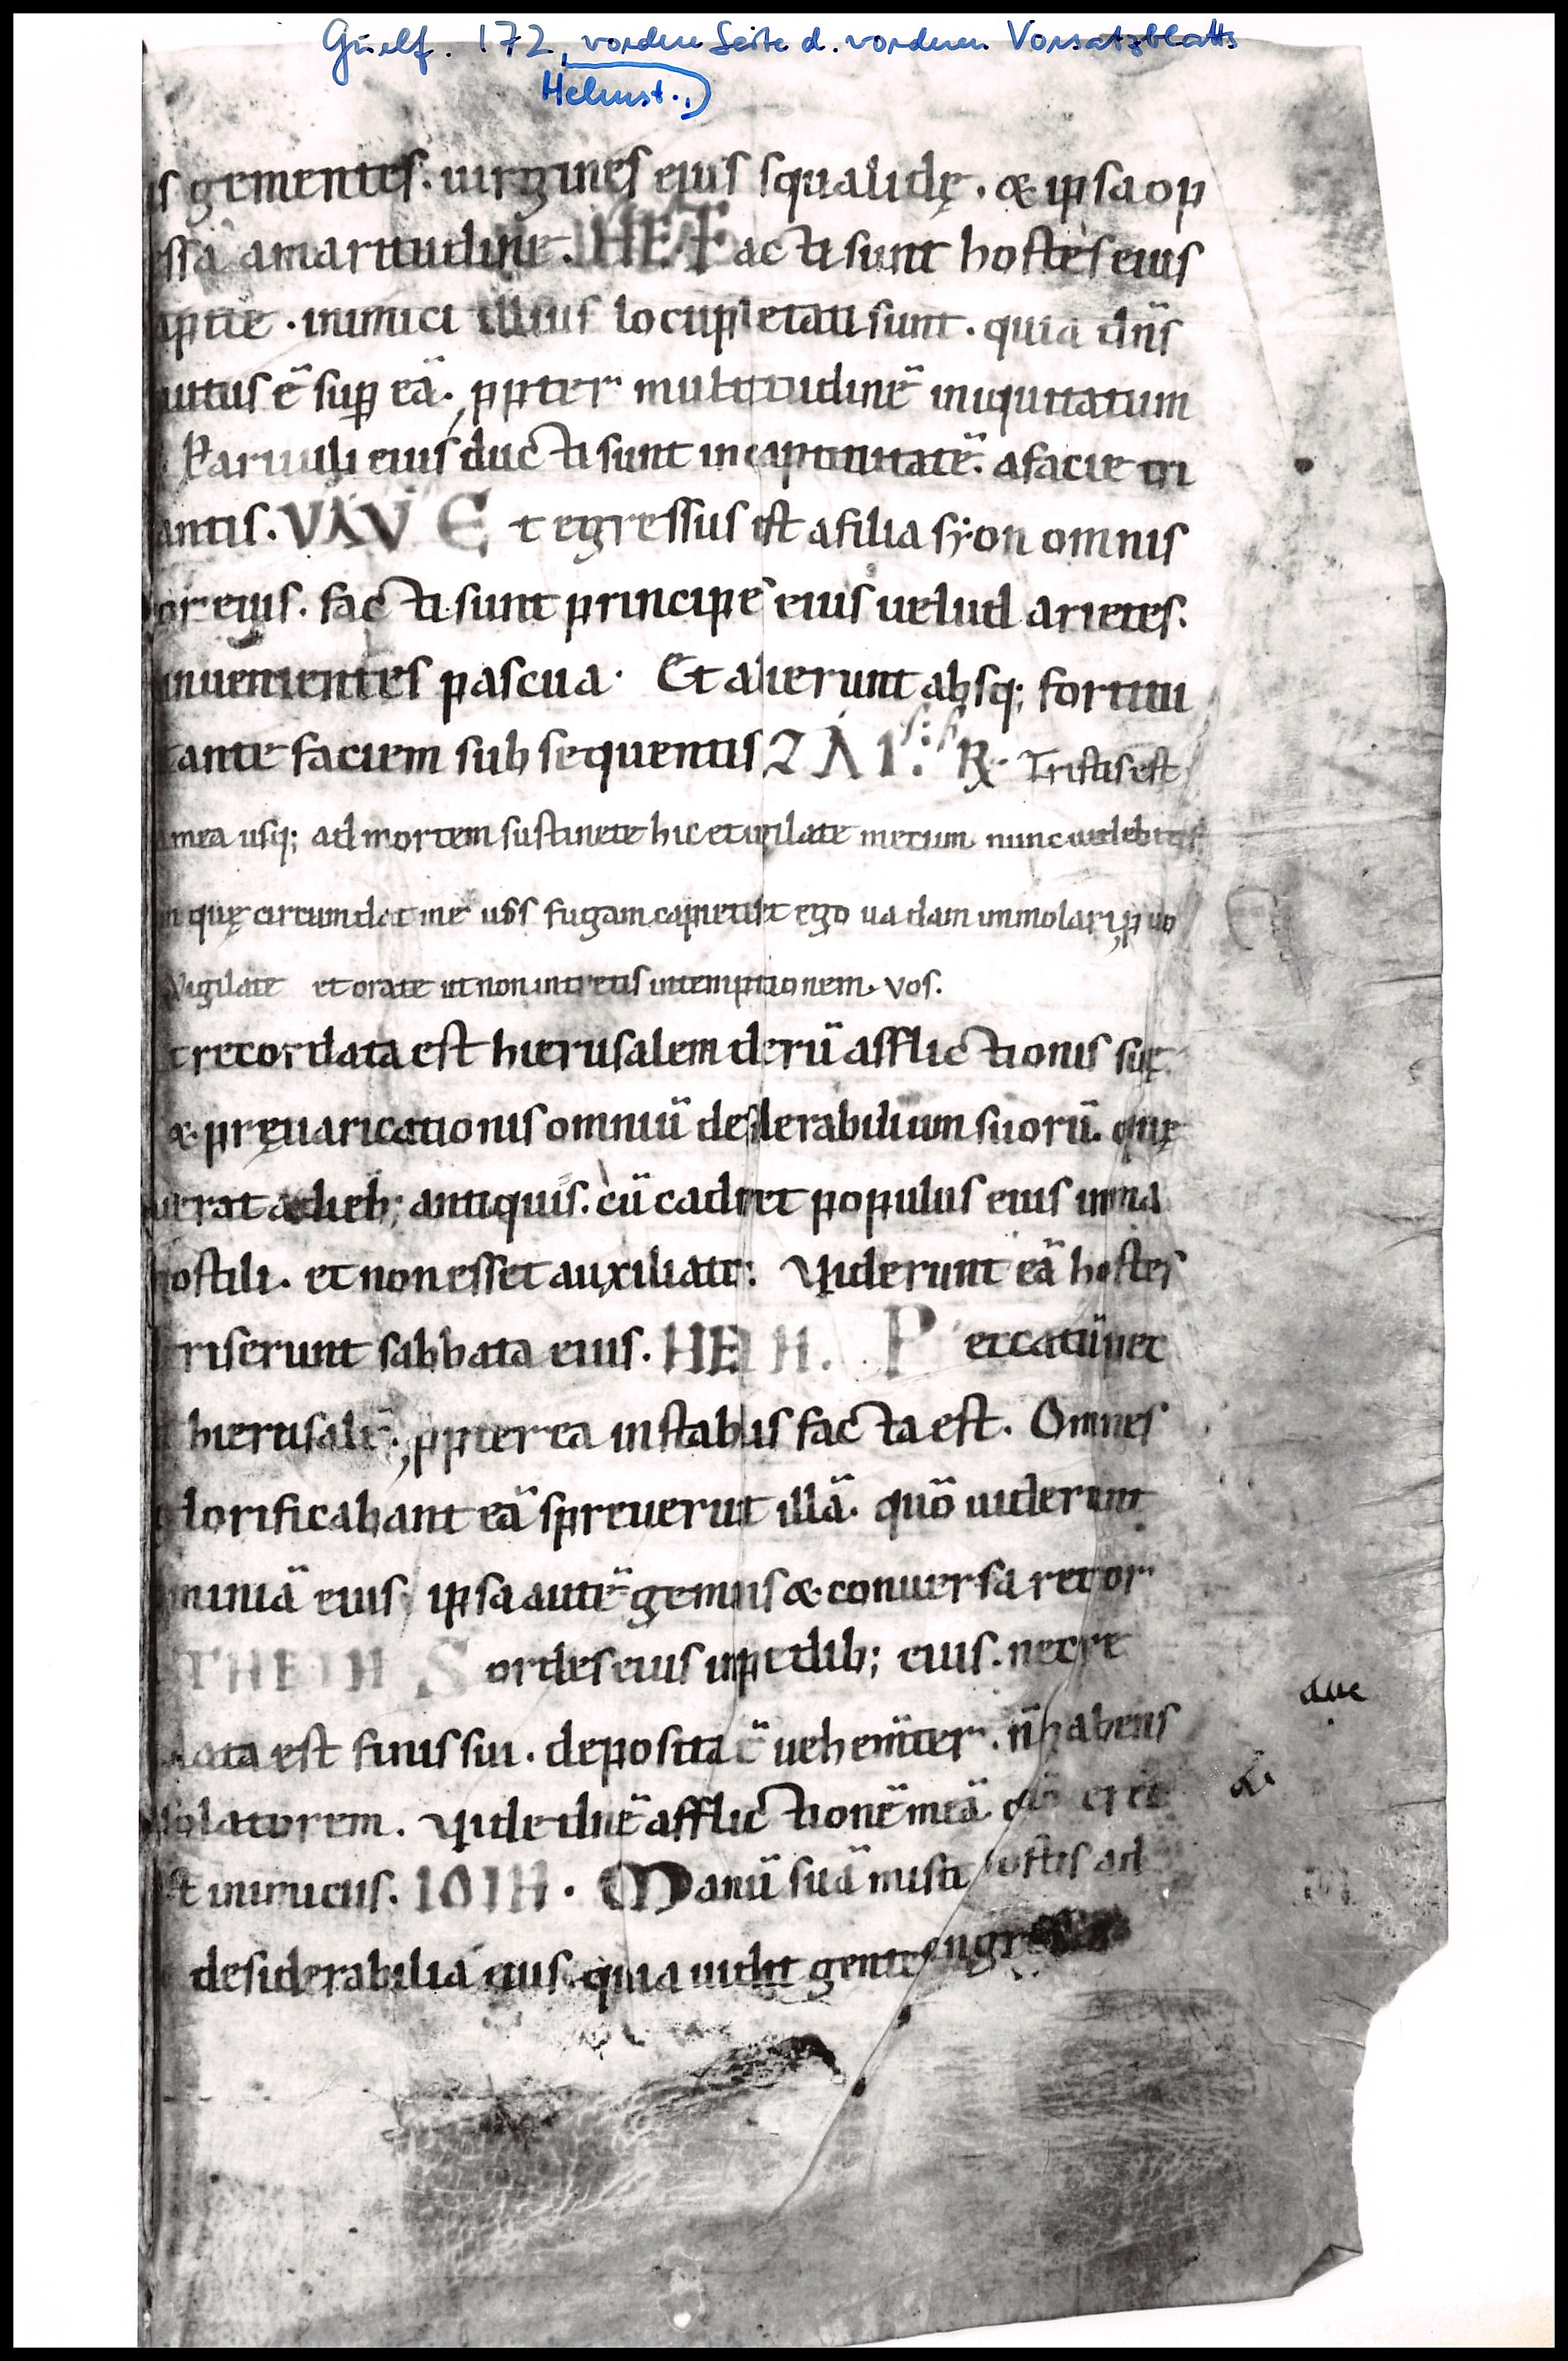 Guelf. 172, vordere Seite d. vorderen Vorsatzblatts
Helmst.
is gementes. uirgines eius squalidę. & ipsa op
ssa amaritudine. HE Facti sunt hostes eius
apite. inimici illius locupletati sunt. quia dn̄s
utus ē sup̱ eā. ꝓpter multitudinē iniquitatum
Paruuli eius ducti sunt in captiuitatē. a facie tri
antis. VAV Et egressus est a filia syon omnis
or eius. facti sunt principes eius uelud arietes.
inuenientes pascua. Et abierunt absq; fortitu
ante faciem subsequentis ZAI. ℟ Tristis est
mea usq; ad mortem sustinete hic et uigilate mecum nunc uidebitis
quę circumdat me uos fugam capietis et ego uadam immolari ꝓ uo
Vigilate et orate ut non intretis in temptationem. vos.
recordata est hierusalem dierū afflictionis suę
& pręuaricationis omniū desiderabilium suorū. quę
uerat a dieb; antiquis. cū caderet populus eius in ma
hostili. et non esset auxiliator. Viderunt eā hostes
riserunt sabbata eius. HETH. Peccatū pec
hierusalē, ꝓpterea instabilis facta est. Omnes
glorificabant eā spreuerunt illā. quō uiderunt
miniā eius, ipsa autē gemens & conuersa retor
THETH Sordes eius in pedib; eius. nec re
data est finis sui. deposita ē uehemīter. n̄ habens
solatorem. Vide dn̄e afflictionē meā. qm̄ erec
inimicus. IOTH. Manū suā misit hostis ad
desiderabilia eius. quia uidit gentes ingressas